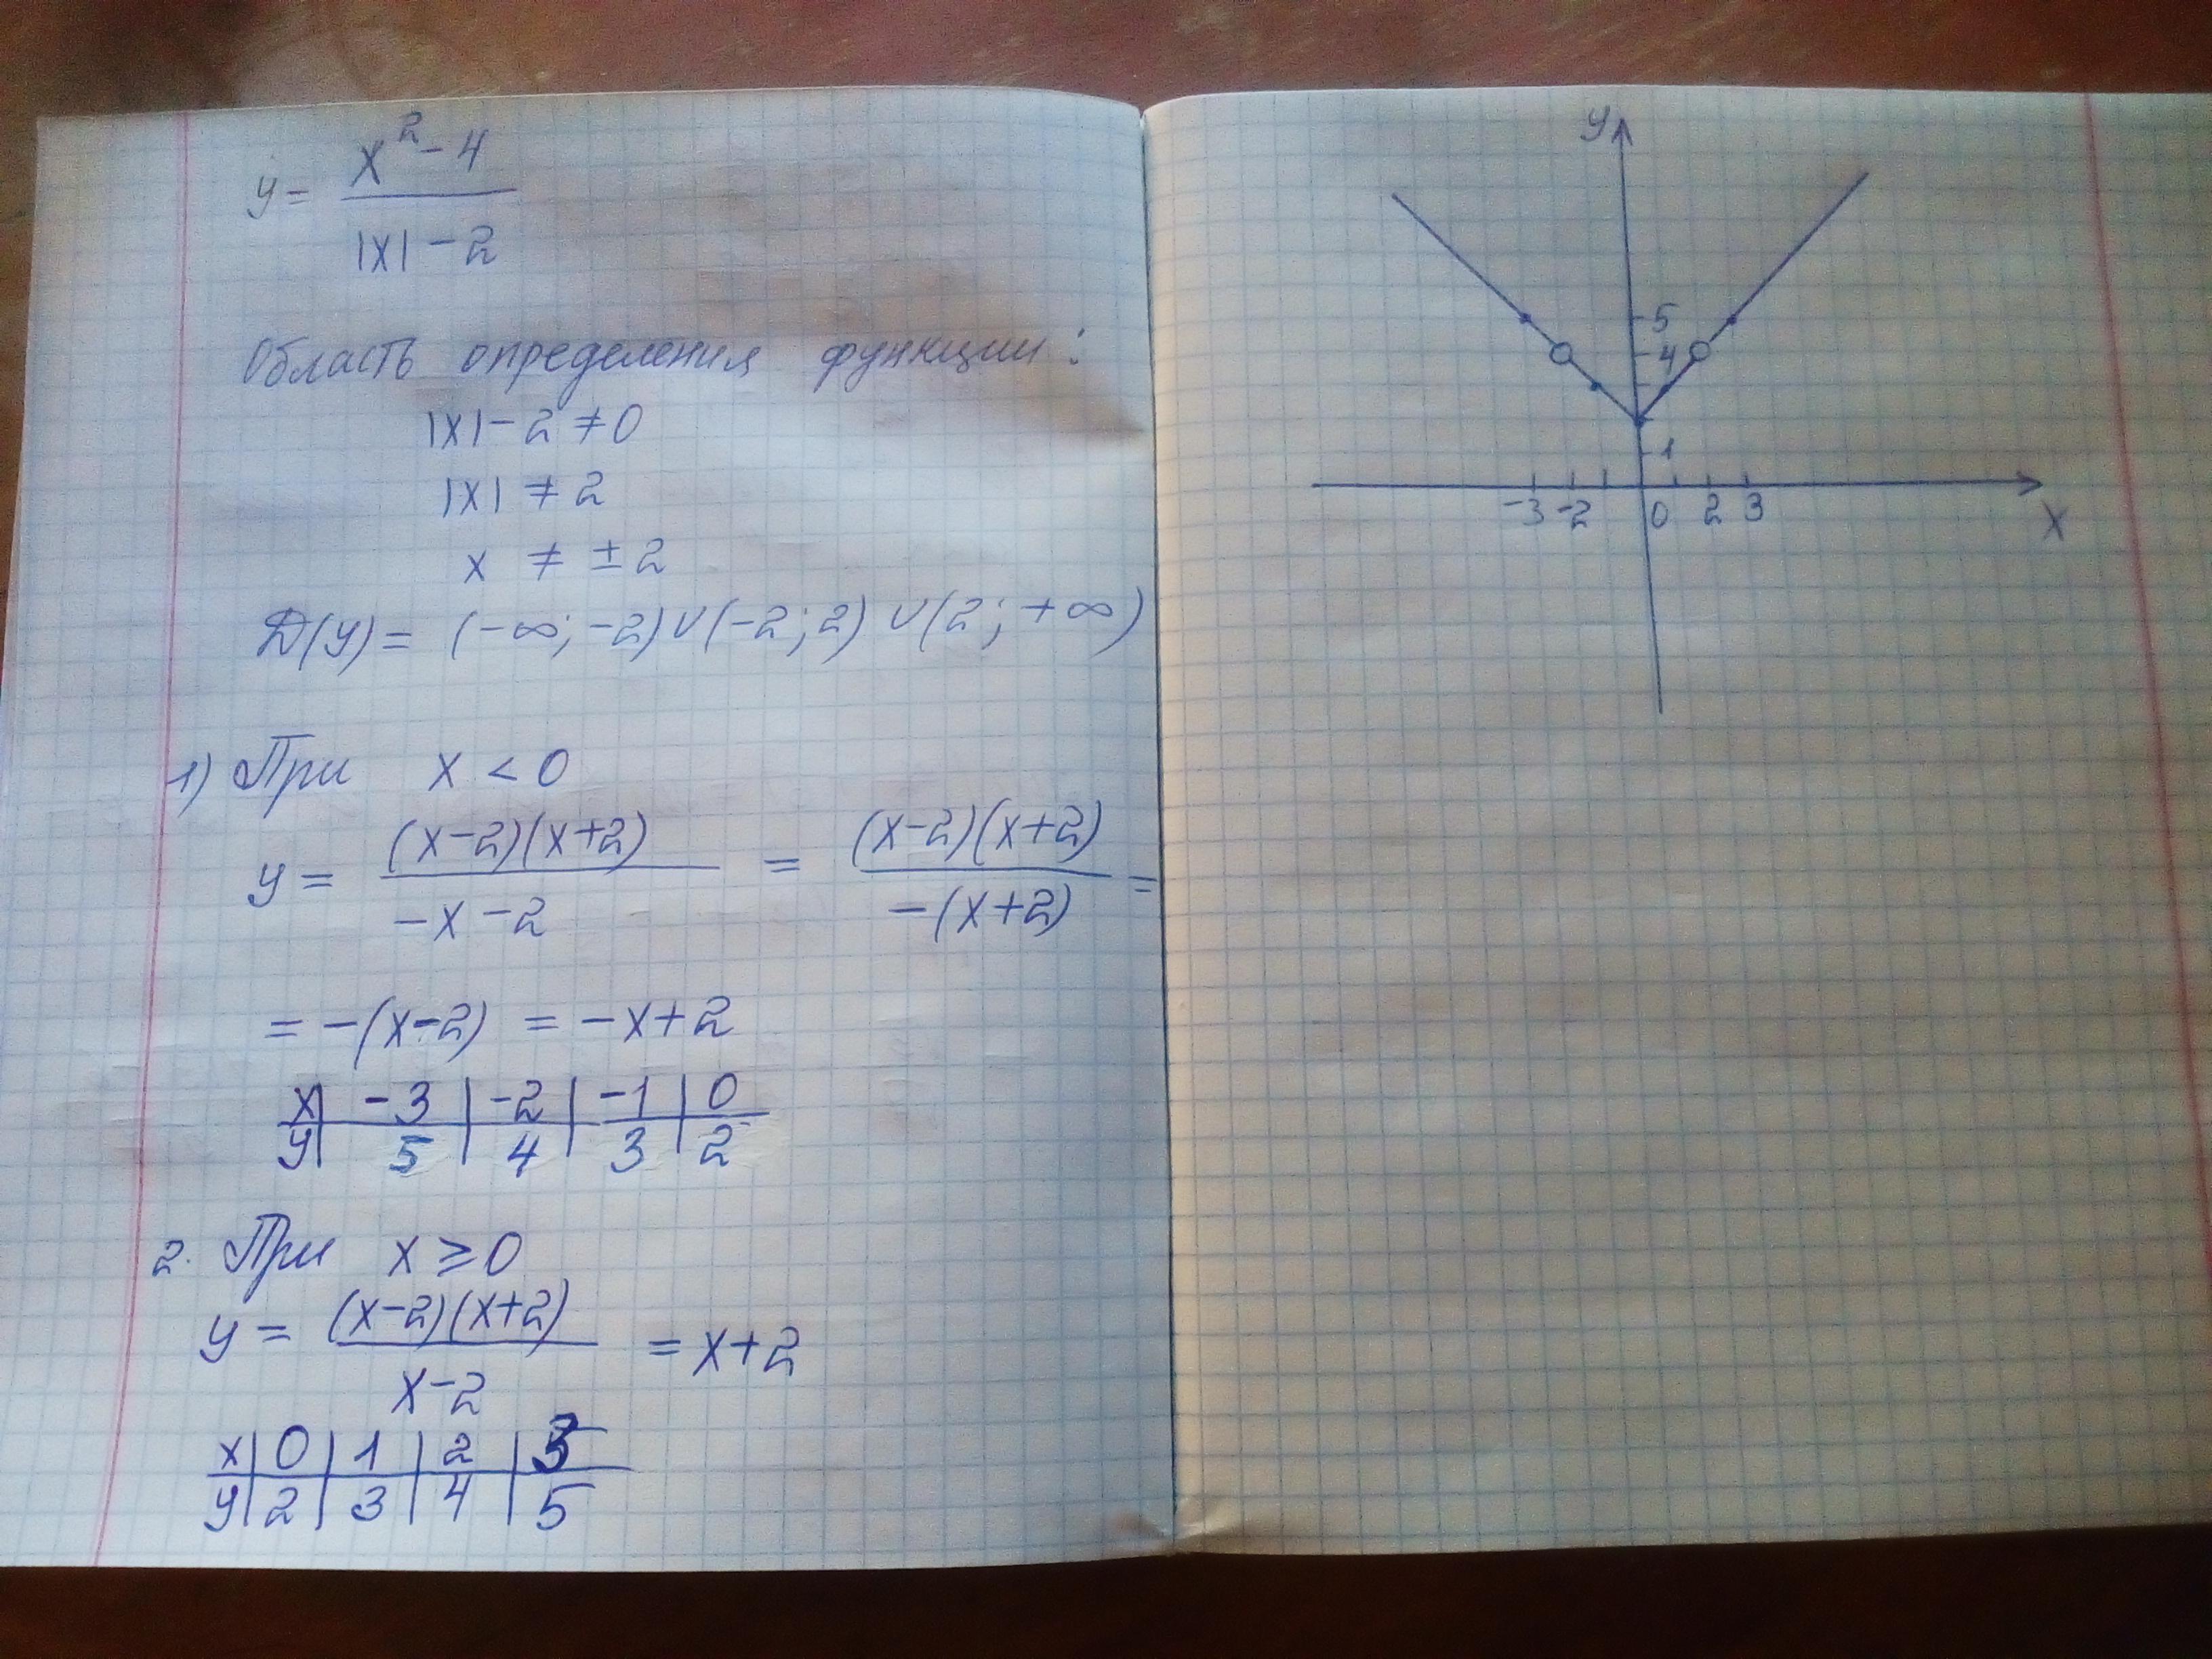 y = x² - 4 / |x| - 2
Область определения функции:
|x| - 2 ≠ 0
|x| ≠ 2
x ≠ ± 2
D(y) = (-∞; -2) ∪ (-2; 2) ∪ (2; +∞)
1) При x < 0
y = (x-2)(x+2) / -x - 2 = (x-2)(x+2) / -(x+2) =
= -(x-2) = -x+2
x | -3 | -2 | -1 | 0
y | 5 | 4 | 3 | 2
2. При x ≥ 0
y = (x-2)(x+2) / x-2 = x+2
x | 0 | 1 | 2 | 3
y | 2 | 3 | 4 | 5
y
5
4
1
-3 -2 0 2 3
x